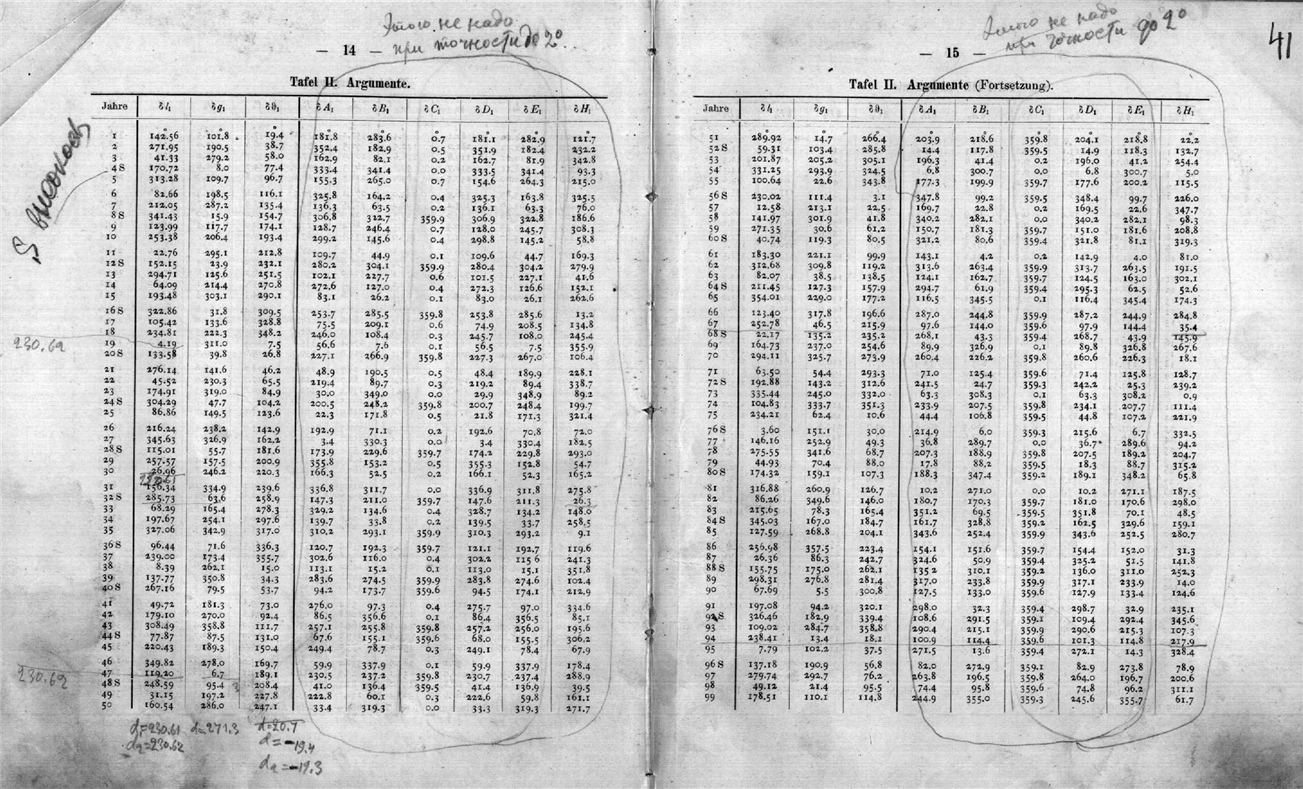 Этого не надо
при точности до 2°.
— 14 —
Tafel II. Argumente.
Jahre δl₁ δg₁ δϑ₁ δA₁ δB₁ δC₁ δD₁ δE₁ δH₁
1 142.56 101.8 19.4 181.8 283.6 0.7 181.1 282.9 121.7
2 271.95 190.5 38.7 352.4 182.9 0.5 351.9 182.4 232.2
3 41.33 279.2 58.0 162.9 82.1 0.2 162.7 81.9 342.8
4 S 170.72 8.0 77.4 333.4 341.4 0.0 333.5 341.4 93.3
5 313.28 109.7 96.7 155.3 265.0 0.7 154.6 264.3 215.0
6 82.66 198.5 116.1 325.8 164.2 0.4 325.3 163.8 325.5
7 212.05 287.2 135.4 136.3 63.5 0.2 136.1 63.3 76.0
8 S 341.43 15.9 154.7 306.8 322.7 359.9 306.9 322.8 186.6
9 123.99 117.7 174.1 128.7 246.4 0.7 128.0 245.7 308.3
10 253.38 206.4 193.4 299.2 145.6 0.4 298.8 145.2 58.8
11 22.76 295.1 212.8 109.7 44.9 0.1 109.6 44.7 169.3
12 S 152.15 23.9 232.1 280.2 304.1 359.9 280.4 304.2 279.9
13 294.71 125.6 251.5 102.1 227.7 0.6 101.5 227.1 41.6
14 64.09 214.4 270.8 272.6 127.0 0.4 272.3 126.6 152.1
15 193.48 303.1 290.1 83.1 26.2 0.1 83.0 26.1 262.6
16 S 322.86 31.8 309.5 253.7 285.5 359.8 253.8 285.6 13.2
17 105.42 133.6 328.8 75.5 209.1 0.6 74.9 208.5 134.8
18 234.81 222.3 348.2 246.0 108.4 0.3 245.7 108.0 245.4
19 4.19 311.0 7.5 56.6 7.6 0.1 56.5 7.5 355.9
20 S 133.58 39.8 26.8 227.1 266.9 359.8 227.3 267.0 106.4
21 276.14 141.6 46.2 48.9 190.5 0.5 48.4 189.9 228.1
22 45.52 230.3 65.5 219.4 89.7 0.3 219.2 89.4 338.7
23 174.91 319.0 84.9 30.0 349.0 0.0 29.9 348.9 89.2
24 S 304.29 47.7 104.2 200.5 248.2 359.8 200.7 248.4 199.7
25 86.86 149.5 123.6 22.3 171.8 0.5 21.8 171.3 321.4
26 216.24 238.2 142.9 192.9 71.1 0.2 192.6 70.8 72.0
27 345.63 326.9 162.2 3.4 330.3 0.0 3.4 330.4 182.5
28 S 115.01 55.7 181.6 173.9 229.6 359.7 174.2 229.8 293.0
29 257.57 157.5 200.9 355.8 153.2 0.5 355.3 152.8 54.7
30 26.96 246.2 220.3 166.3 52.5 0.2 166.1 52.3 165.2
31 156.34 334.9 239.6 336.8 311.7 0.0 336.9 311.8 275.8
32 S 285.73 63.6 258.9 147.3 211.0 359.7 147.6 211.3 26.3
33 68.29 165.4 278.3 329.2 134.6 0.4 328.7 134.2 148.0
34 197.67 254.1 297.6 139.7 33.8 0.2 139.5 33.7 258.5
35 327.06 342.9 317.0 310.2 293.1 359.9 310.3 293.2 9.1
36 S 96.44 71.6 336.3 120.7 192.3 359.7 121.1 192.7 119.6
37 239.00 173.4 355.7 302.6 116.0 0.4 302.2 115.6 241.3
38 8.39 262.1 15.0 113.1 15.2 0.1 113.0 15.1 351.8
39 137.77 350.8 34.3 283.6 274.5 359.9 283.8 274.6 102.4
40 S 267.16 79.5 53.7 94.2 173.7 359.6 94.5 174.1 212.9
41 49.72 181.3 73.0 276.0 97.3 0.4 275.7 97.0 334.6
42 179.10 270.0 92.4 86.5 356.6 0.1 86.4 356.5 85.1
43 308.49 358.8 111.7 257.1 255.8 359.8 257.2 256.0 195.6
44 S 77.87 87.5 131.0 67.6 155.1 359.6 68.0 155.5 306.2
45 220.43 189.3 150.4 249.4 78.7 0.3 249.1 78.4 67.9
46 349.82 278.0 169.7 59.9 337.9 0.1 59.9 337.9 178.4
47 119.20 6.7 189.1 230.5 237.2 359.8 230.7 237.4 288.9
48 S 248.59 95.4 208.4 41.0 136.4 359.5 41.4 136.9 39.5
49 31.15 197.2 227.8 222.8 60.1 0.3 222.6 59.8 161.1
50 160.54 286.0 247.1 33.4 319.3 0.0 33.3 319.3 271.7
S високос
230.62
230.61
230.62
d=230.61 d=271.3 d=20.7
d₂=230.62 d=-19.4
d₂=-19.3
Этого не надо
при точности до 2°
41
— 15 —
Tafel II. Argumente (Fortsetzung).
Jahre δl₁ δg₁ δϑ₁ δA₁ δB₁ δC₁ δD₁ δE₁ δH₁
51 289.92 14.7 266.4 203.9 218.6 359.8 204.1 218.8 22.2
52 S 59.31 103.4 285.8 14.4 117.8 359.5 14.9 118.3 132.7
53 201.87 205.2 305.1 196.3 41.4 0.2 196.0 41.2 254.4
54 331.25 293.9 324.5 6.8 300.7 0.0 6.8 300.7 5.0
55 100.64 22.6 343.8 177.3 199.9 359.7 177.6 200.2 115.5
56 S 230.02 111.4 3.1 347.8 99.2 359.5 348.4 99.7 226.0
57 12.58 213.1 22.5 169.7 22.8 0.2 169.5 22.6 347.7
58 141.97 301.9 41.8 340.2 282.1 0.0 340.2 282.1 98.3
59 271.35 30.6 61.2 150.7 181.3 359.7 151.0 181.6 208.8
60 S 40.74 119.3 80.5 321.2 80.6 359.4 321.8 81.1 319.3
61 183.30 221.1 99.9 143.1 4.2 0.2 142.9 4.0 81.0
62 312.68 309.8 119.2 313.6 263.4 359.9 313.7 263.5 191.5
63 82.07 38.5 138.5 124.1 162.7 359.7 124.5 163.0 302.1
64 S 211.45 127.3 157.9 294.7 61.9 359.4 295.3 62.5 52.6
65 354.01 229.0 177.2 116.5 345.5 0.1 116.4 345.4 174.3
66 123.40 317.8 196.6 287.0 244.8 359.9 287.2 244.9 284.8
67 252.78 46.5 215.9 97.6 144.0 359.6 97.9 144.4 35.4
68 S 22.17 135.2 235.2 268.1 43.3 359.4 268.7 43.9 145.9
69 164.73 237.0 254.6 89.9 326.9 0.1 89.8 326.8 267.6
70 294.11 325.7 273.9 260.4 226.2 359.8 260.6 226.3 18.1
71 63.50 54.4 293.3 71.0 125.4 359.6 71.4 125.8 128.7
72 S 192.88 143.2 312.6 241.5 24.7 359.3 242.2 25.3 239.2
73 335.44 245.0 332.0 63.3 308.3 0.1 63.3 308.2 0.9
74 104.83 333.7 351.3 233.9 207.5 359.8 234.1 207.7 111.4
75 234.21 62.4 10.6 44.4 106.8 359.5 44.8 107.2 221.9
76 S 3.60 151.1 30.0 214.9 6.0 359.3 215.6 6.7 332.5
77 146.16 252.9 49.3 36.8 289.7 0.0 36.7 289.6 94.2
78 275.55 341.6 68.7 207.3 188.9 359.8 207.5 189.2 204.7
79 44.93 70.4 88.0 17.8 88.2 359.5 18.3 88.7 315.2
80 S 174.32 159.1 107.3 188.3 347.4 359.2 189.1 348.2 65.8
81 316.88 260.9 126.7 10.2 271.0 0.0 10.2 271.1 187.5
82 86.26 349.6 146.0 180.7 170.3 359.7 181.0 170.6 298.0
83 215.65 78.3 165.4 351.2 69.5 359.5 351.8 70.1 48.5
84 S 345.03 167.0 184.7 161.7 328.8 359.2 162.5 329.6 159.1
85 127.59 268.8 204.1 343.6 252.4 359.9 343.6 252.5 280.7
86 256.98 357.5 223.4 154.1 151.6 359.7 154.4 152.0 31.3
87 26.36 86.3 242.7 324.6 50.9 359.4 325.2 51.5 141.8
88 S 155.75 175.0 262.1 135.2 310.1 359.2 136.0 311.0 252.3
89 298.31 276.8 281.4 317.0 233.8 359.9 317.1 233.9 14.0
90 67.69 5.5 300.8 127.5 133.0 359.6 127.9 133.4 124.6
91 197.08 94.2 320.1 298.0 32.3 359.4 298.7 32.9 235.1
92 S 326.46 182.9 339.4 108.6 291.5 359.1 109.4 292.4 345.6
93 109.02 284.7 358.8 290.4 215.1 359.9 290.6 215.3 107.3
94 238.41 13.4 18.1 100.9 114.4 359.6 101.3 114.8 217.9
95 7.79 102.2 37.5 271.5 13.6 359.4 272.1 14.3 328.4
96 S 137.18 190.9 56.8 82.0 272.9 359.1 82.9 273.8 78.9
97 279.74 292.7 76.2 263.8 196.5 359.8 264.0 196.7 200.6
98 49.12 21.4 95.5 74.4 95.8 359.6 74.8 96.2 311.1
99 178.51 110.1 114.8 244.9 355.0 359.3 245.6 355.7 61.7